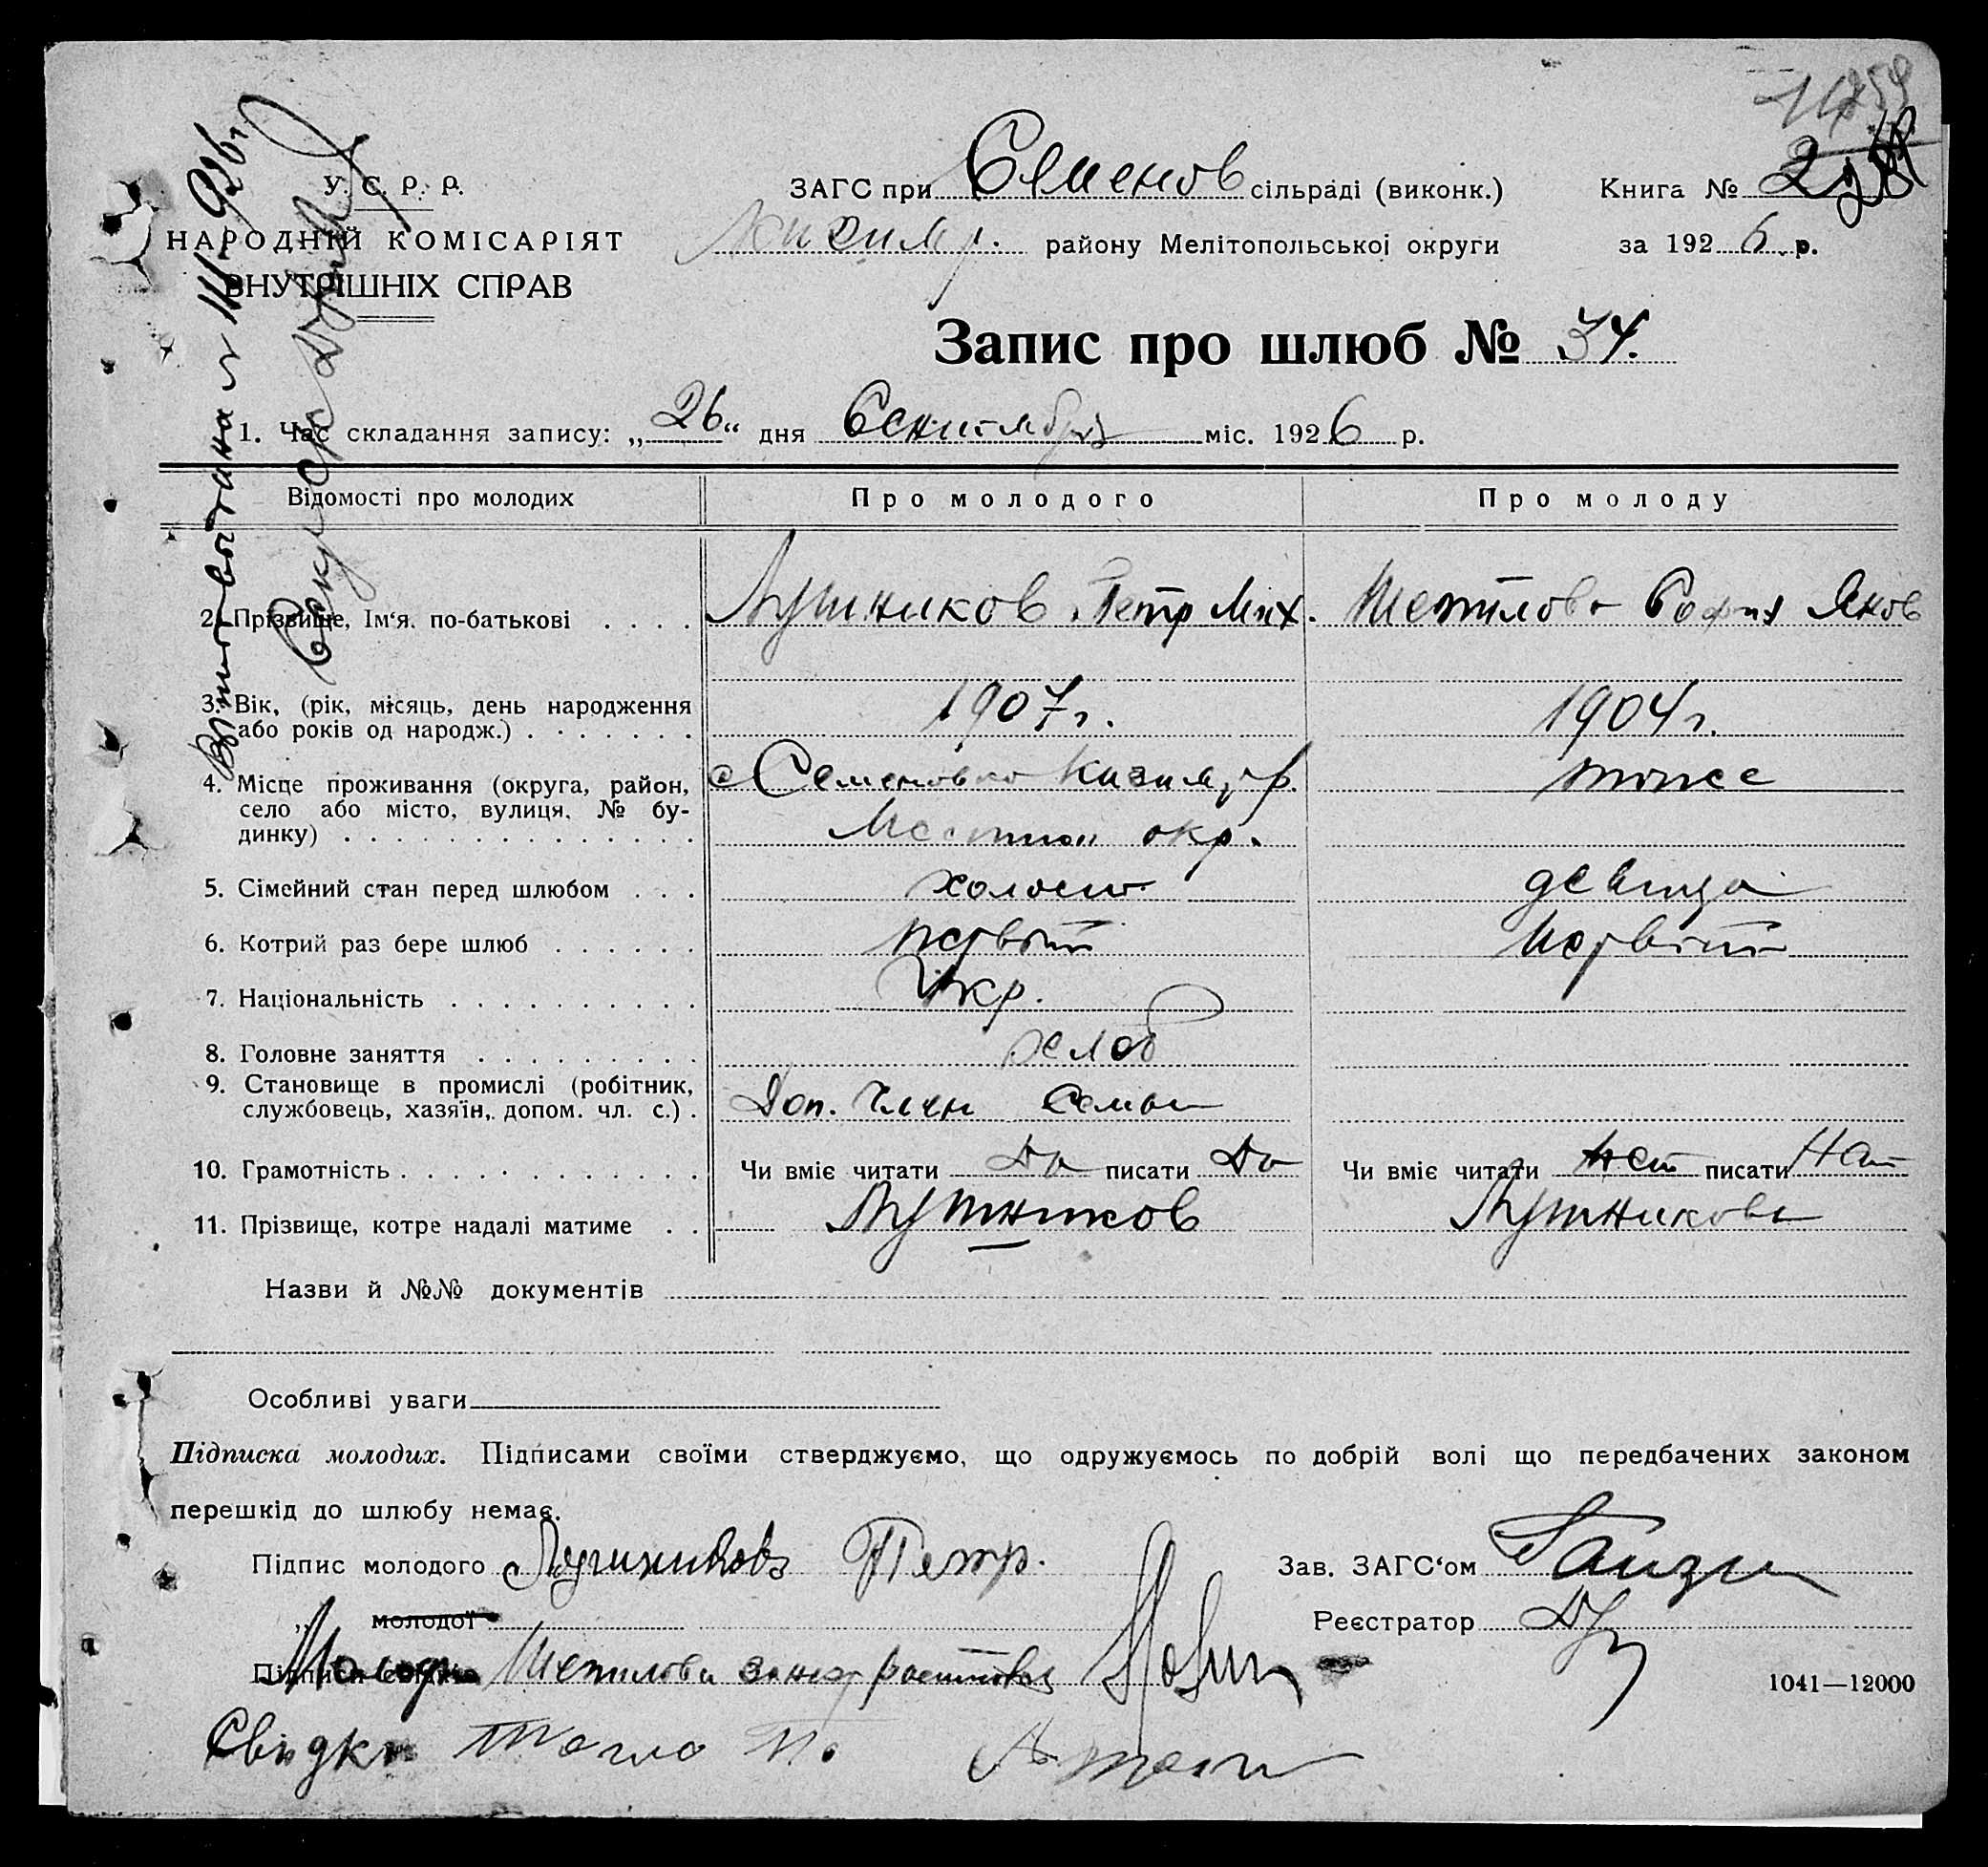 У. С. Р. Р.
НАРОДНІЙ КОМІСАРІЯТ
ВНУТРІШНІХ СПРАВ
ЗАГС при Семенов сільраді (виконк.)
Книга № 2
району Мелітопольської округи
за 1926 р.
Запис про шлюб № 34.
1. Час складання запису: „26“ дня Сентября міс. 1926 р.
Відомості про молодих
Про молодого
Про молоду
2. Прізвище, Ім‘я, по-батькові . . . .
Лушников Петр Мих.
София Яков
3. Вік, (рік, місяць, день народження
або років од народж.) . . . . . . .
1907 г.
1904 г.
4. Місце проживання (округа, район,
село або місто, вулиця, № бу-
динку) . . . . . . . . . . . . . .
с Семеновка р.
окр.
тоже
5. Сімейний стан перед шлюбом . . .
холост
девица
6. Котрий раз бере шлюб . . . . . .
первый
Первый
7. Національність . . . . . . . . . .
Укр.
8. Головне заняття . . . . . . . . .
хлеб
9. Становище в промислі (робітник,
службовець, хазяїн, допом. чл. с.) .
Доп. Член Семьи
10. Грамотність . . . . . . . . . . . .
Чи вміє читати Да писати Да
Чи вміє читати нет писати Нет
11. Прізвище, котре надалі матиме . .
Лушников
Лушникова
Назви й №№ документів
Особливі уваги
Підписка молодих. Підписами своїми стверджуємо, що одружуємось по добрій волі що передбачених законом
перешкід до шлюбу немає.
Підпис молодого Лушников Петр.
Зав. ЗАГС‘ом
„ молодої
Реєстратор
Підписи свідків
1041—12000
Свидки